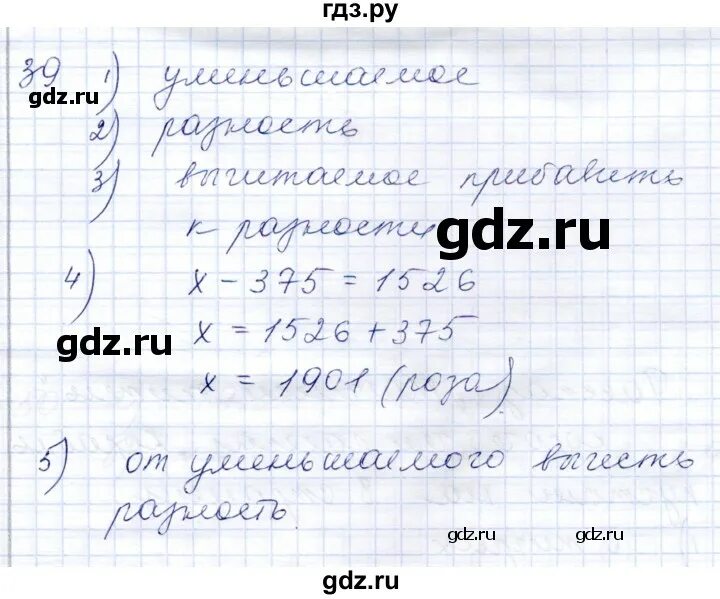 гдз.ру
39 1) уменьшаемое
gdz.ru
2) разность
3) вычитаемое прибавить
к разности
gdz.ru
4) x - 375 = 1526
x = 1526 + 375
gdz.ru
x = 1901 (роза)
5) от уменьшаемого вычесть
разность.
gdz.ru gdz.ru
gdz.ru